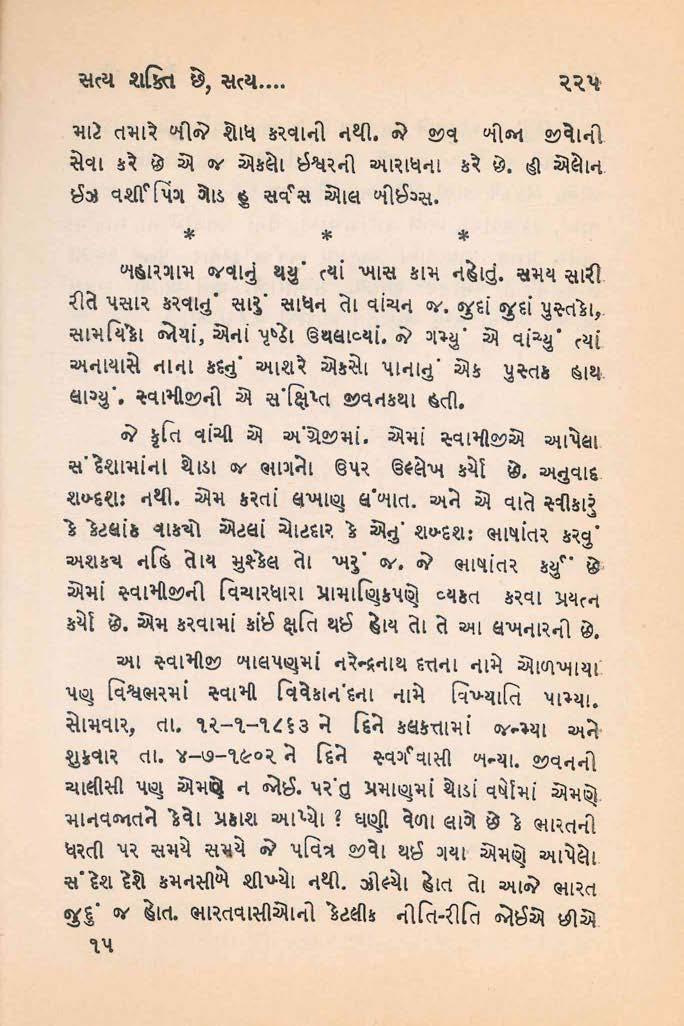 સત્ય શક્તિ છે, સત્ય.... ૨૨૫
માટે તમારે બીજે શોધ કરવાની નથી. જે જીવ બીજા જીવોની
સેવા કરે છે એ જ એકલો ઈશ્વરની આરાધના કરે છે. હી એલોન
ઈઝ વર્શીપિંગ ગોડ હુ સર્વસ ઓલ બીઈંગ્સ.
* * *
બહારગામ જવાનું થયું ત્યાં ખાસ કામ નહોતું. સમય સારી
રીતે પસાર કરવાનું સારું સાધન તો વાંચન જ. જુદાં જુદાં પુસ્તકો,
સામયિકો જોયાં, એનાં પૃષ્ઠો ઉથલાવ્યાં. જે ગમ્યું એ વાંચ્યું ત્યાં
અનાયાસે નાના કદનું આશરે એકસો પાનાનું એક પુસ્તક હાથ
લાગ્યું. સ્વામીજીની એ સંક્ષિપ્ત જીવનકથા હતી.
જે કૃતિ વાંચી એ અંગ્રેજીમાં. એમાં સ્વામીજીએ આપેલા
સંદેશામાંના થોડા જ ભાગનો ઉપર ઉલ્લેખ કર્યો છે. અનુવાદ
શબ્દશઃ નથી. એમ કરતાં લખાણ લંબાત. અને એ વાતે સ્વીકારું
કે કેટલાંક વાકયો એટલાં ચોટદાર કે એનું શબ્દશઃ ભાષાંતર કરવું
અશકય નહિ તોય મુશ્કેલ તો ખરું જ. જે ભાષાંતર કર્યું છે
એમાં સ્વામીજીની વિચારધારા પ્રામાણિકપણે વ્યકત કરવા પ્રયત્ન
કર્યો છે. એમ કરવામાં કાંઈ ક્ષતિ થઈ હોય તો તે આ લખનારની છે.
આ સ્વામીજી બાલપણમાં નરેન્દ્રનાથ દત્તના નામે ઓળખાયા
પણ વિશ્વભરમાં સ્વામી વિવેકાનંદના નામે વિખ્યાતિ પામ્યા.
સોમવાર, તા. ૧૨-૧-૧૮૬૩ ને દિને કલકત્તામાં જન્મ્યા અને
શુક્રવાર તા. ૪-૭-૧૯૦૨ ને દિને સ્વર્ગવાસી બન્યા. જીવનની
ચાલીસી પણ એમણે ન જોઈ. પરંતુ પ્રમાણમાં થોડાં વર્ષોમાં એમણે
માનવજાતને કેવો પ્રકાશ આપ્યો ? ઘણી વેળા લાગે છે કે ભારતની
ધરતી પર સમયે સમયે જે પવિત્ર જીવો થઈ ગયા એમણે આપેલો
સંદેશ દેશે કમનસીબે શીખ્યો નથી. ઝીલ્યો હોત તો આજે ભારત
જુદું જ હોત. ભારતવાસીઓની કેટલીક નીતિ-રીતિ જોઈએ છીએ
૧૫